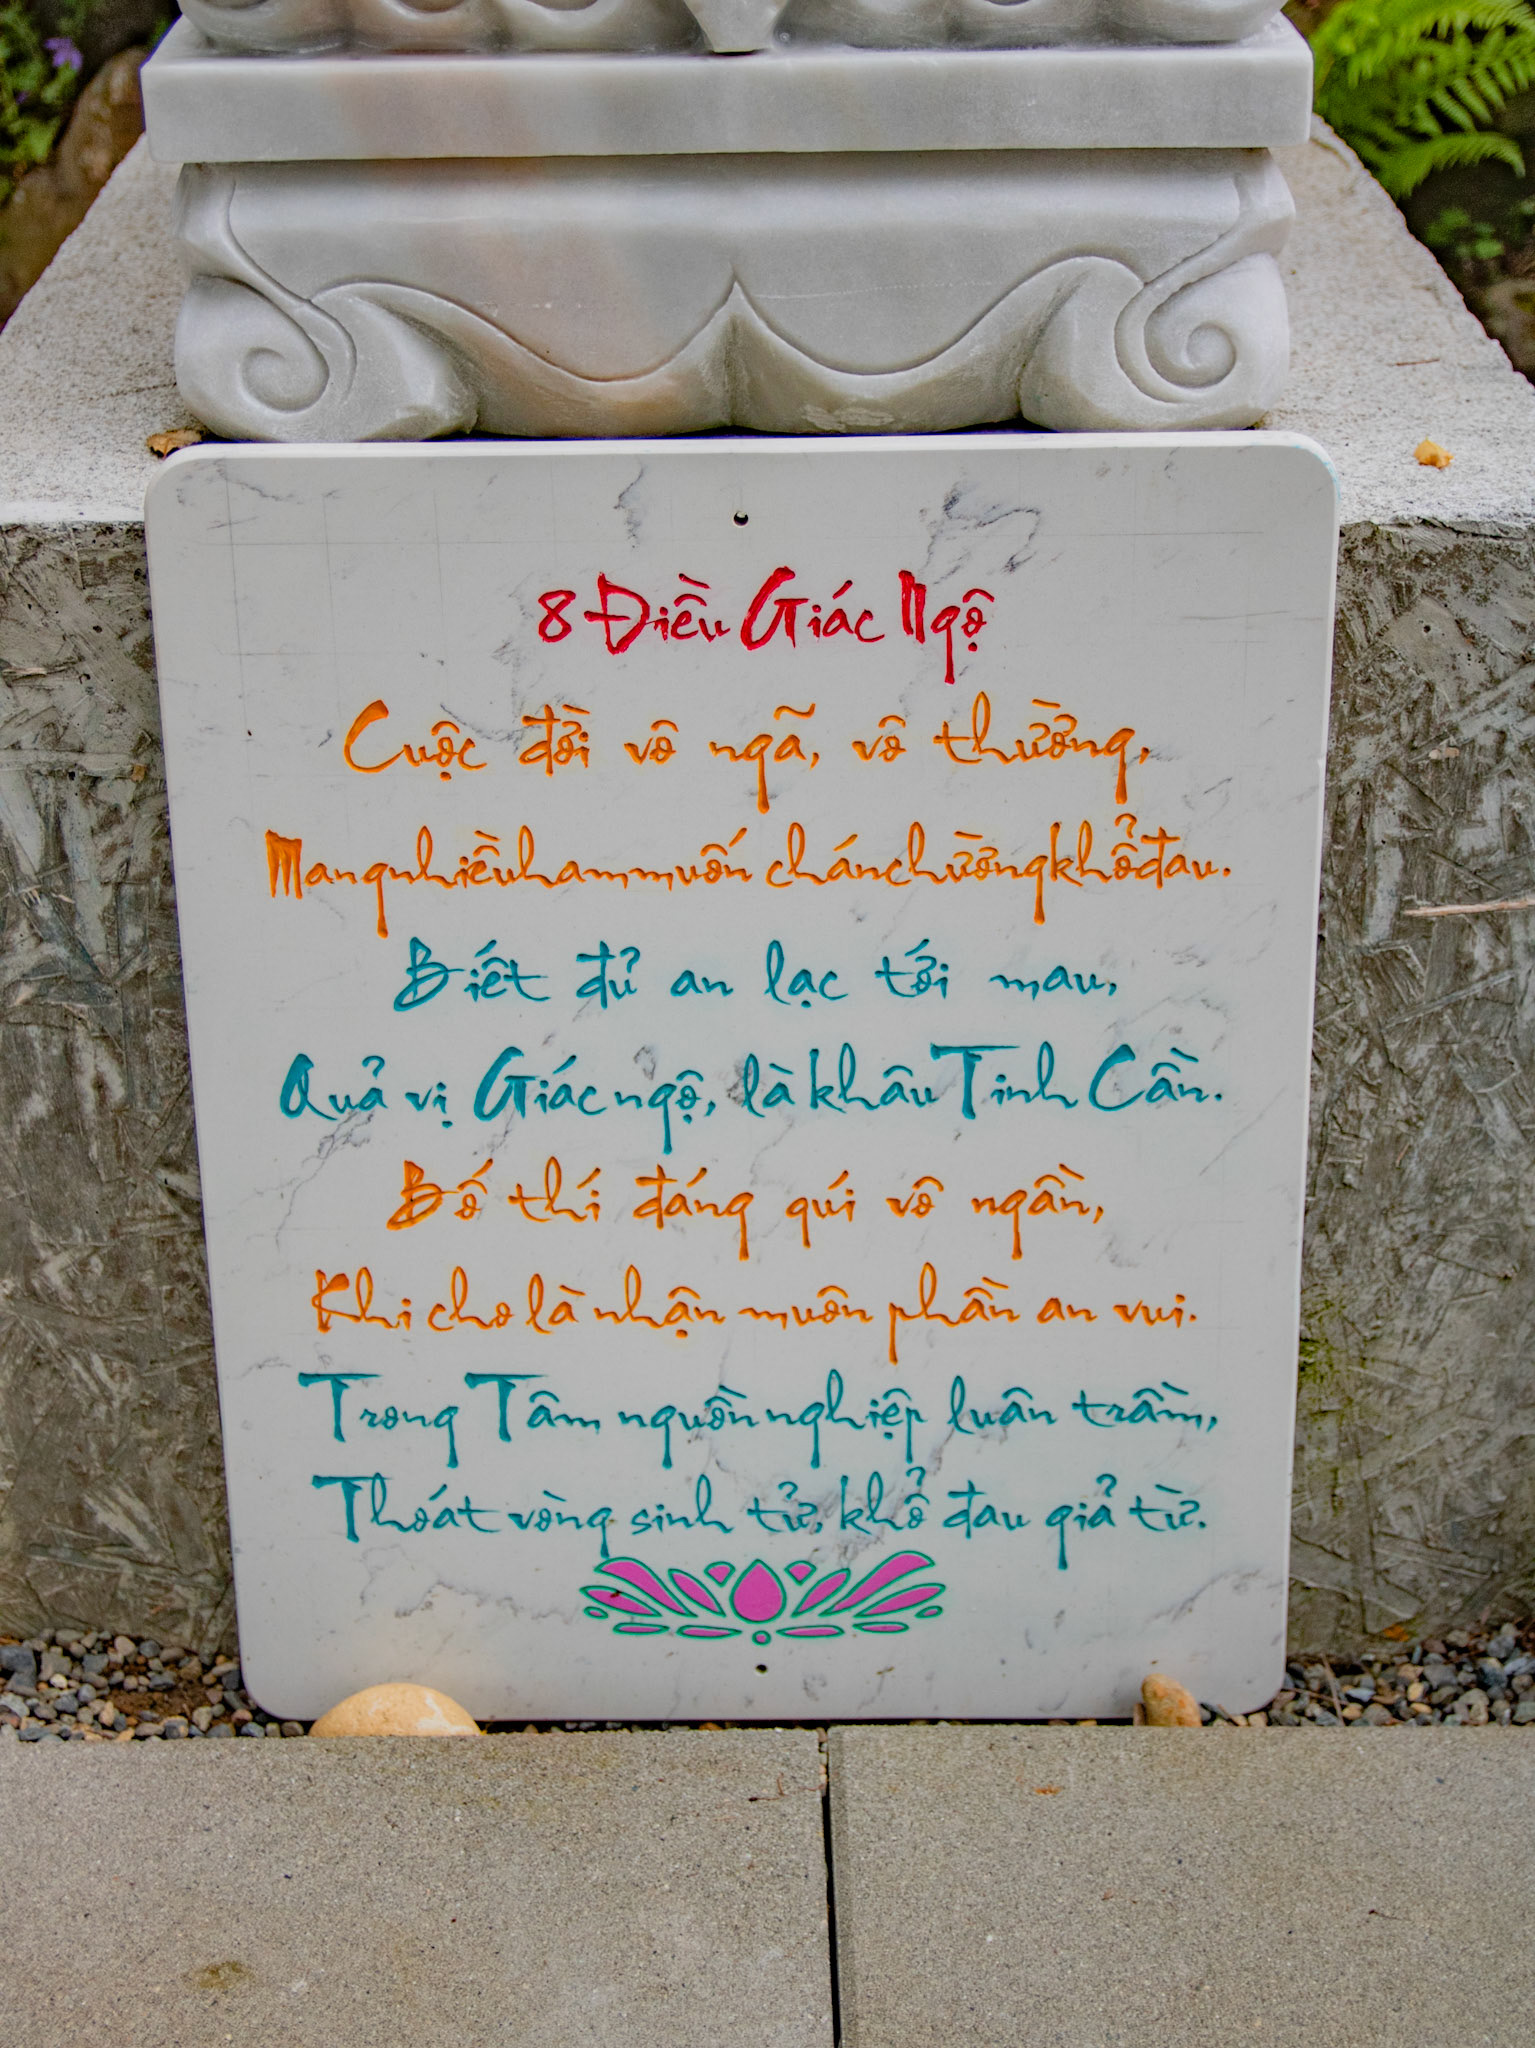 8 Điều Giác Ngộ
Cuộc đời vô ngã, vô thường,
Mang nhiều ham muốn chán chường khổ đau.
Biết đủ an lạc tới mau,
Quả vị Giác ngộ, là khâu Tinh Cần.
Bố thí đáng qúi vô ngần,
Khi cho là nhận muôn phần an vui.
Trong Tâm nguồn nghiệp luân trầm,
Thoát vòng sinh tử, khổ đau giả từ.